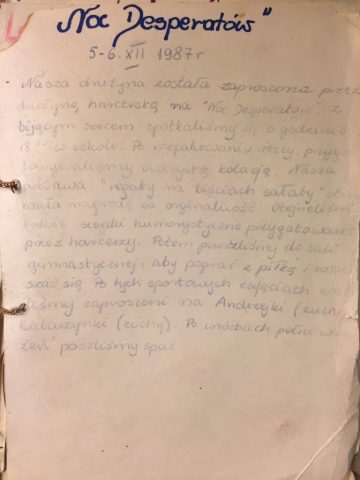 "Noc Desperatów"
5-6.XII 1987r
Nasza drużyna została zaproszona przez
drużynę harcerską na "Noc Desperatów". Z
bijącym sercem spotkaliśmy się o godzinie
18⁰⁰ w szkole. Po rozpakowaniu rzeczy, przygo-
towywaliśmy uroczystą kolację. Nasza
potrawa "regaty na liściach sałaty" otrzy-
mała nagrodę za oryginalność. Obejrzeliśmy
scenki humorystyczne przygotowane
przez harcerzy. Potem poszliśmy do sali
gimnastycznej, aby pograć z piłką i
szać się. Po tych sportowych zajęciach zos-
liśmy zaproszeni na Andrzejki (zuchy
Katarzynki (zuchy). Po wróżbach pełni wra-
żeń poszliśmy spać